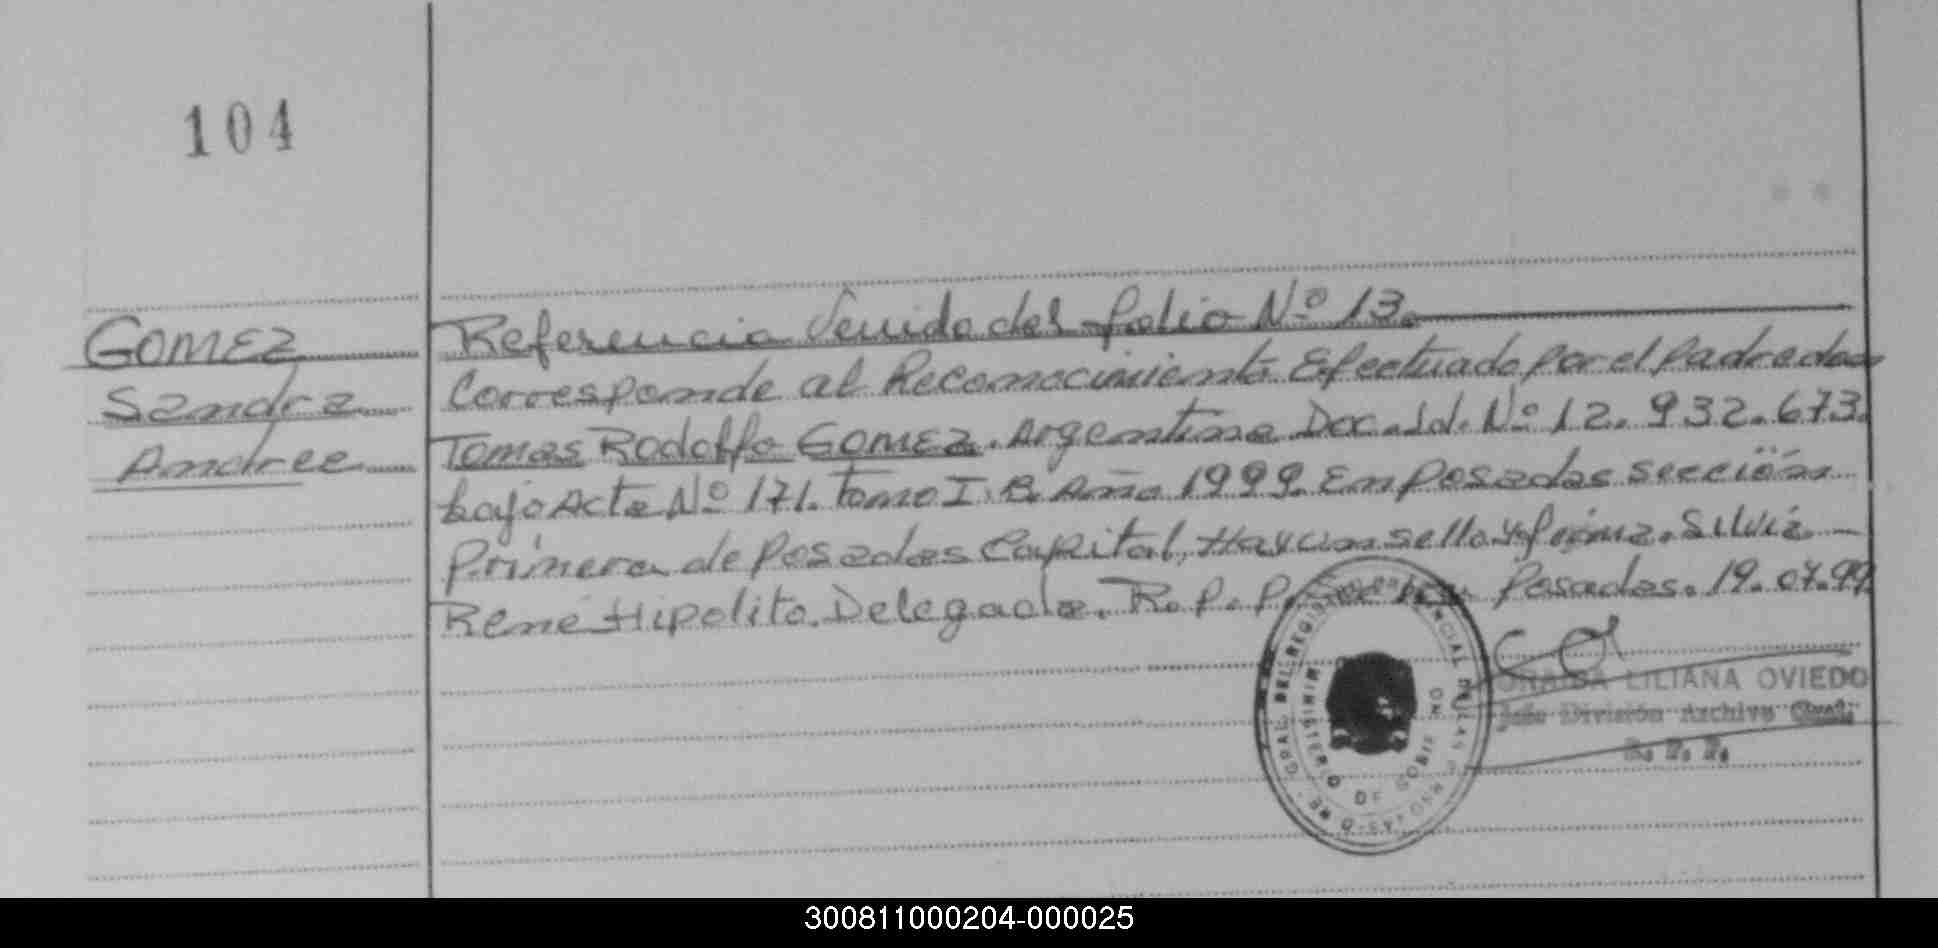 104
GOMEZ
Sandra
Andrea
Referencia Venida del folio Nº 13.
Corresponde al Reconocimiento Efectuado por el Padre don
Tomas Rodolfo GOMEZ. Argentino Doc. Id. Nº 12.932.673.
bajo Acta Nº 171. Tomo I. B. Año 1999. En Posadas sección
Primera de Posadas Capital, Hay un sello y firma. Silvia
René Hipolito. Delegada. R.P.P. Posadas. 19.07.99
LILIANA OVIEDO
Jefe División Archivo Gral.
R. P. P.
GRAL DEL REGISTRO PROVINCIAL DE LAS PERSONAS
MINISTERIO DE GOBIERNO
300811000204-000025